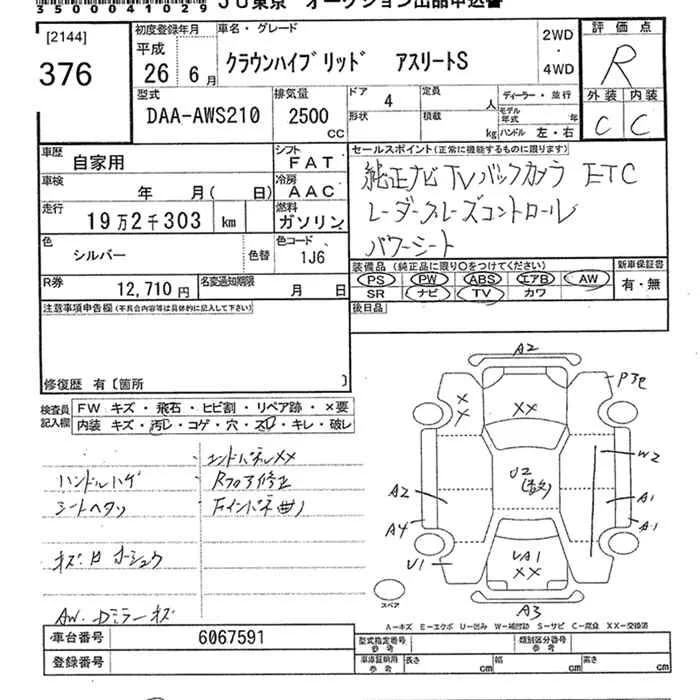 3500041029 JU東京 オークション出品申込書
[2144]
376
初度登録年月
平成
26年6月
車名・グレード
クラウンハイブリッド アスリートS
2WD
・
4WD
評価点
R
型式
DAA-AWS210
排気量
2500
cc
ドア
4
形状
定員
人
積載
kg
ディーラー・並行
モデル年式 年
ハンドル 左・右
外装 内装
C C
車歴
自家用
シフト
FAT
車検
年 月( 日)
冷房
AAC
走行
19万2千303 km
燃料
ガソリン
色
シルバー
色替
色コード
1J6
R券
12,710円
名変通知期限
月 日
セールスポイント(正常に機能するものに限ります)
純正ナビ TV バックカメラ ETC
レーダークルーズコントロール
パワーシート
装備品(純正品に限り○をつけてください)
PS PW ABS エアB AW
SR ナビ TV カワ
新車保証書
有・無
後日品
注意事項申告欄(不具合内容等は具体的に記入して下さい)
修復歴 有〔箇所 〕
検査員記入欄
FW キズ・飛石・ヒビ割・リペア跡・×要
内装 キズ・汚レ・コゲ・穴・スレ・キレ・破レ
ハンドルハゲ
シートヘタリ
エンドパネルXX
Rフロア修正
Fインパネ曲り
AW. Dミラーキズ
A2
P3
XX
XX
U2
W2
A2
A1
A4
A1
U1
UA1
XX
A3
スペア
A-キズ E-エクボ U-凹み W-補修跡 S-サビ C-腐食 XX-交換済
車台番号
6067591
登録番号
型式指定番号
参考
類別区分番号
参考
車庫証明用
参考
長さ cm
幅 cm
高さ cm